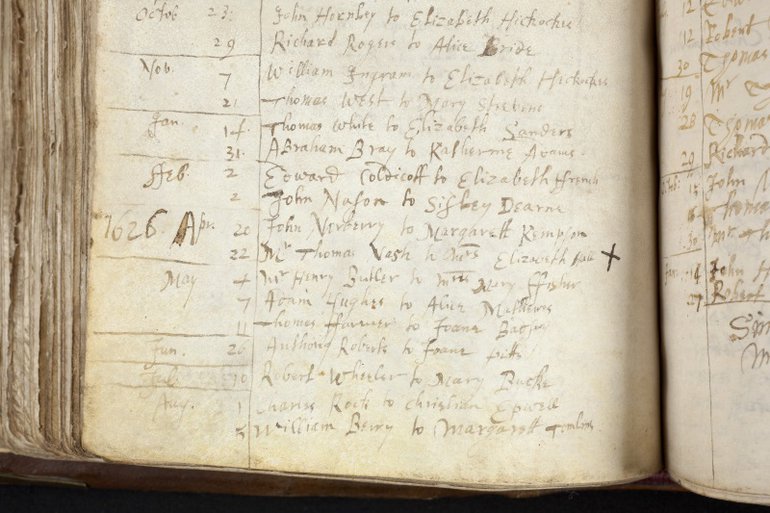 Octob 23. John Hornbey to Elizabeth Hickockes
29 Richard Rogers to Alice Bride
Nov. 7 William Ingram to Elizabeth Hickockes
21 Thomas West to Mary Steevens
Jan. 14. Thomas White to Elizabeth Sanders
31. Abraham Bray to Katherine Adams
Feb. 2 Edward Coldicott to Elizabeth ffrench
2 John Nason to Sisley Dearne
1626 Apr. 20 John Norberry to Margarett Kempson
22 Mr Thomas Nash to Mrs Elizabeth Hall X
May 4 Mr Henry Butler to Mrs Mary ffisher
7 Adam Hughes to Alice Mathewes
11 Thomas to Joane
Jun. 26 Anthony Roberts to Joane pitts
Jul. 10 Robert Wheeler to Mary Bucke
Aug. 1 Charles to Christian
3 William Berry to Margarett Tomlins
12
12 Robert
30 Thomas
19 Mr
28 Thoma
29 Richard
15 John
Thomas
30 Mr
14 John H
27 Robert
Sim
M